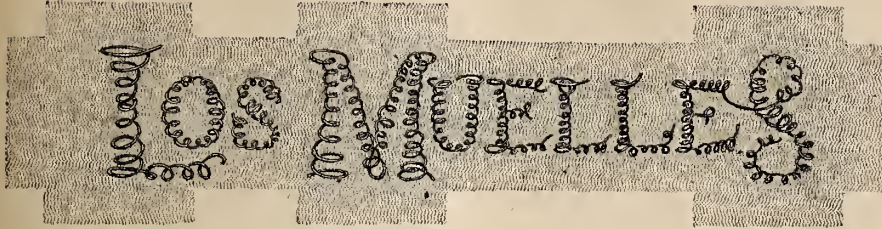 LOS MUELLES